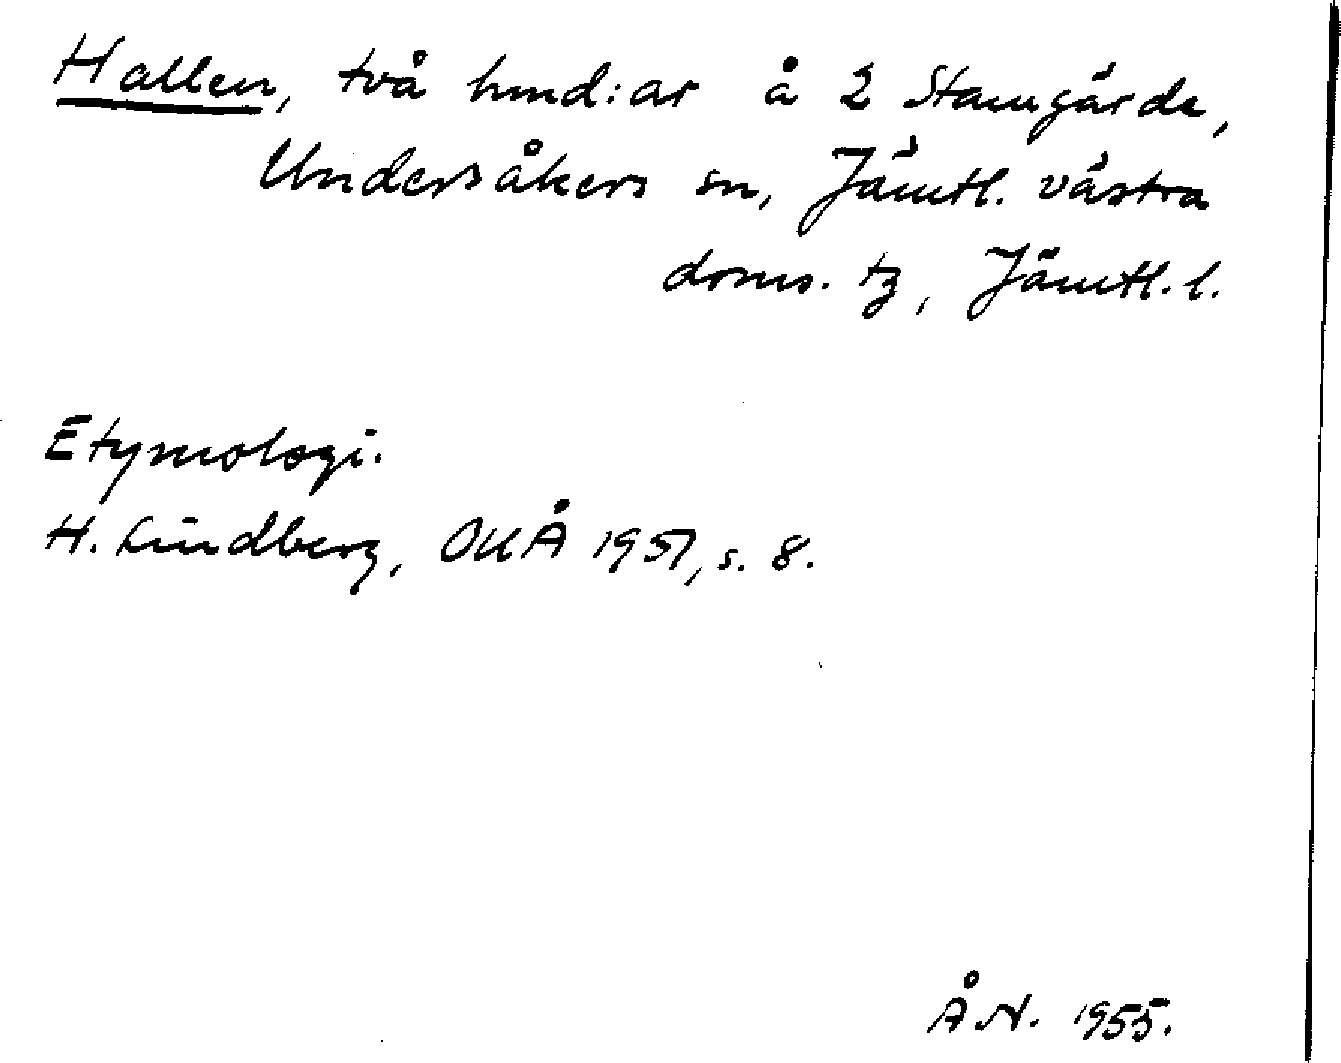 Hallen, två hmd:ar å 2 Stamgärde,
Undersåkers sn, Jämtl. västra
doms. tg, Jämtl. l.
Etymologi.
H. Lindberg, OUÅ 1951, s. 8.
Å.N. 1955.